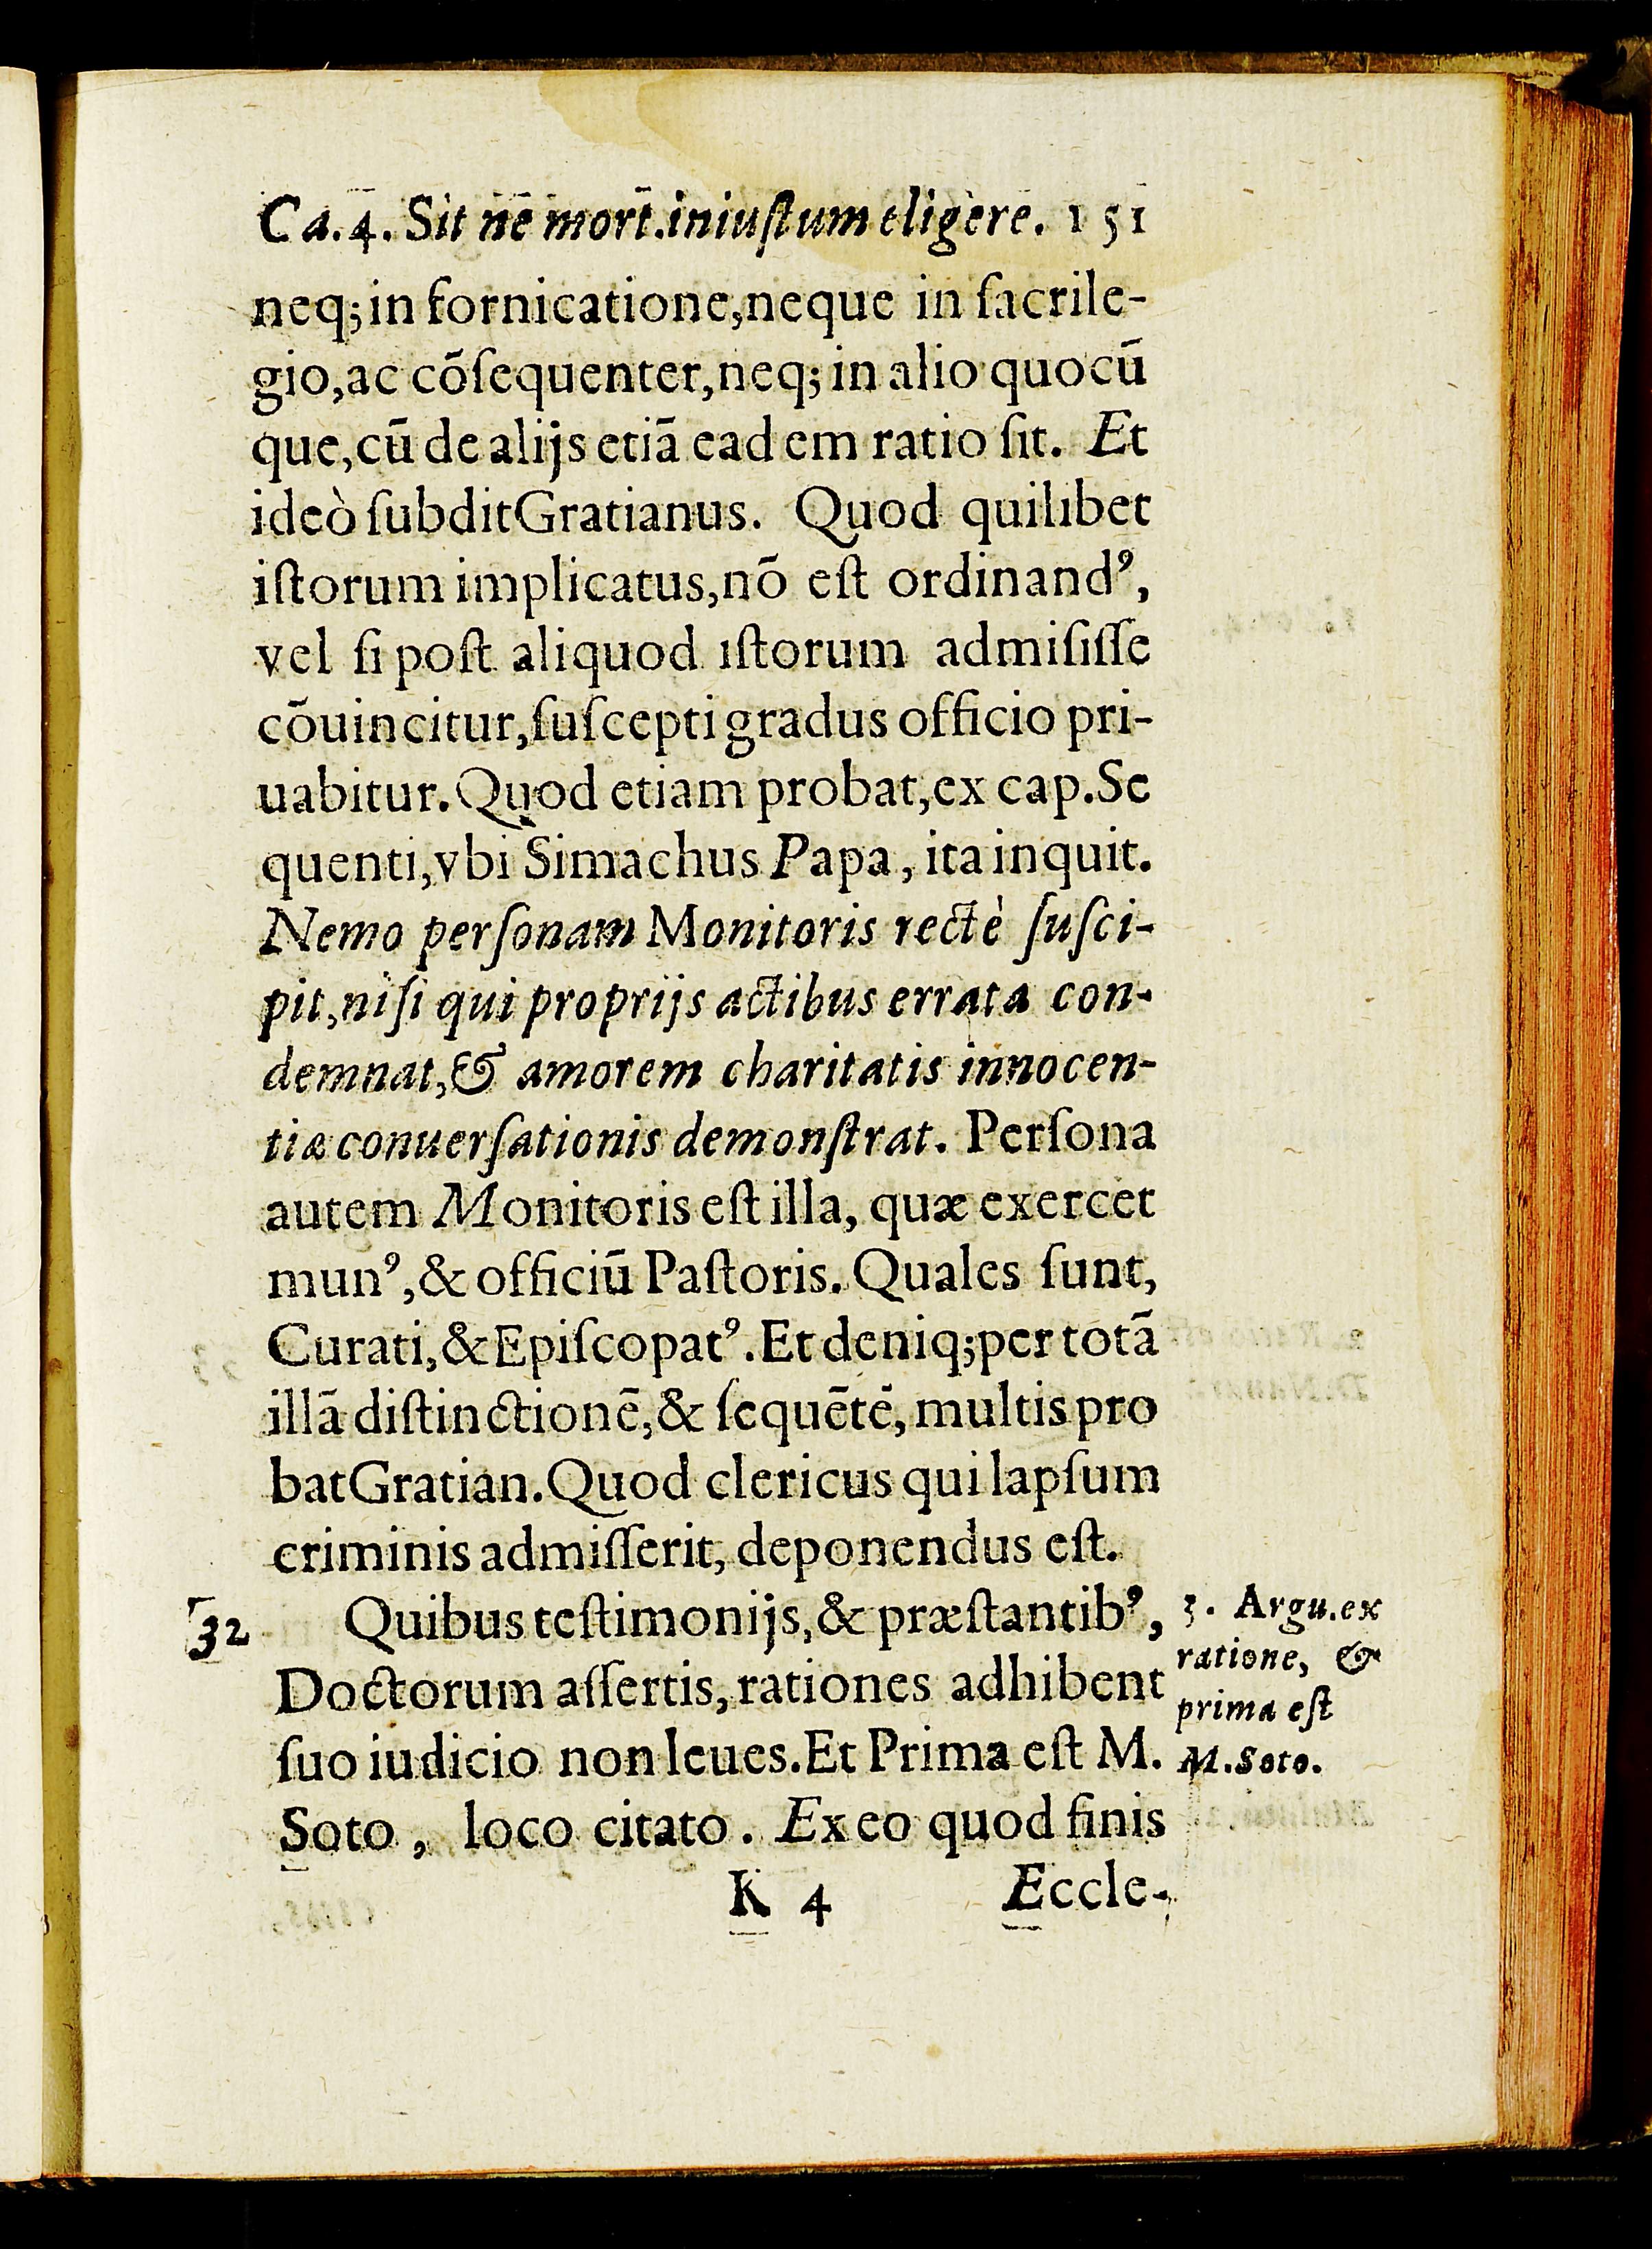 Ca.4. Sit nē mort̄.iniuſtum eligere. 151
neq;in fornicatione,neque in ſacrile-
gio,ac cōſequenter,neq; in alio quocū
que,cū de alijs etiā ead em ratio ſit. Et
ideò ſubditGratianus. Quod quilibet
iſtorum implicatus,nō eſt ordinandꝰ,
vel ſi poſt aliquod iſtorum admiſiſſe
cōuincitur,ſuſcepti gradus officio pri-
uabitur. Quod etiam probat,ex cap.Se
quenti,vbi Simachus Papa, ita inquit.
Nemo perſonam Monitoris rectè ſuſci-
pit,niſi qui proprijs actibus errata con-
demnat,& amorem charitatis innocen-
tiæ conuerſationis demonſtrat. Perſona
autem Monitoris eſt illa, quæ exercet
munꝰ,& officiū Paſtoris. Quales ſunt,
Curati,& Epiſcopatꝰ.Et deniq;per totā
illā diſtinctionē,& ſequētē, multis pro
batGratian.Quod clericus qui lapſum
criminis admiſſerit, deponendus eſt.
32 Quibus teſtimonijs,& præſtantibꝰ,
Doctorum aſſertis, rationes adhibent
ſuo iudicio non leues.Et Prima eſt M.
Soto, loco citato. Ex eo quod finis
3. Argu.ex
ratione, &
prima eſt
M.Soto.
K 4 Eccle-